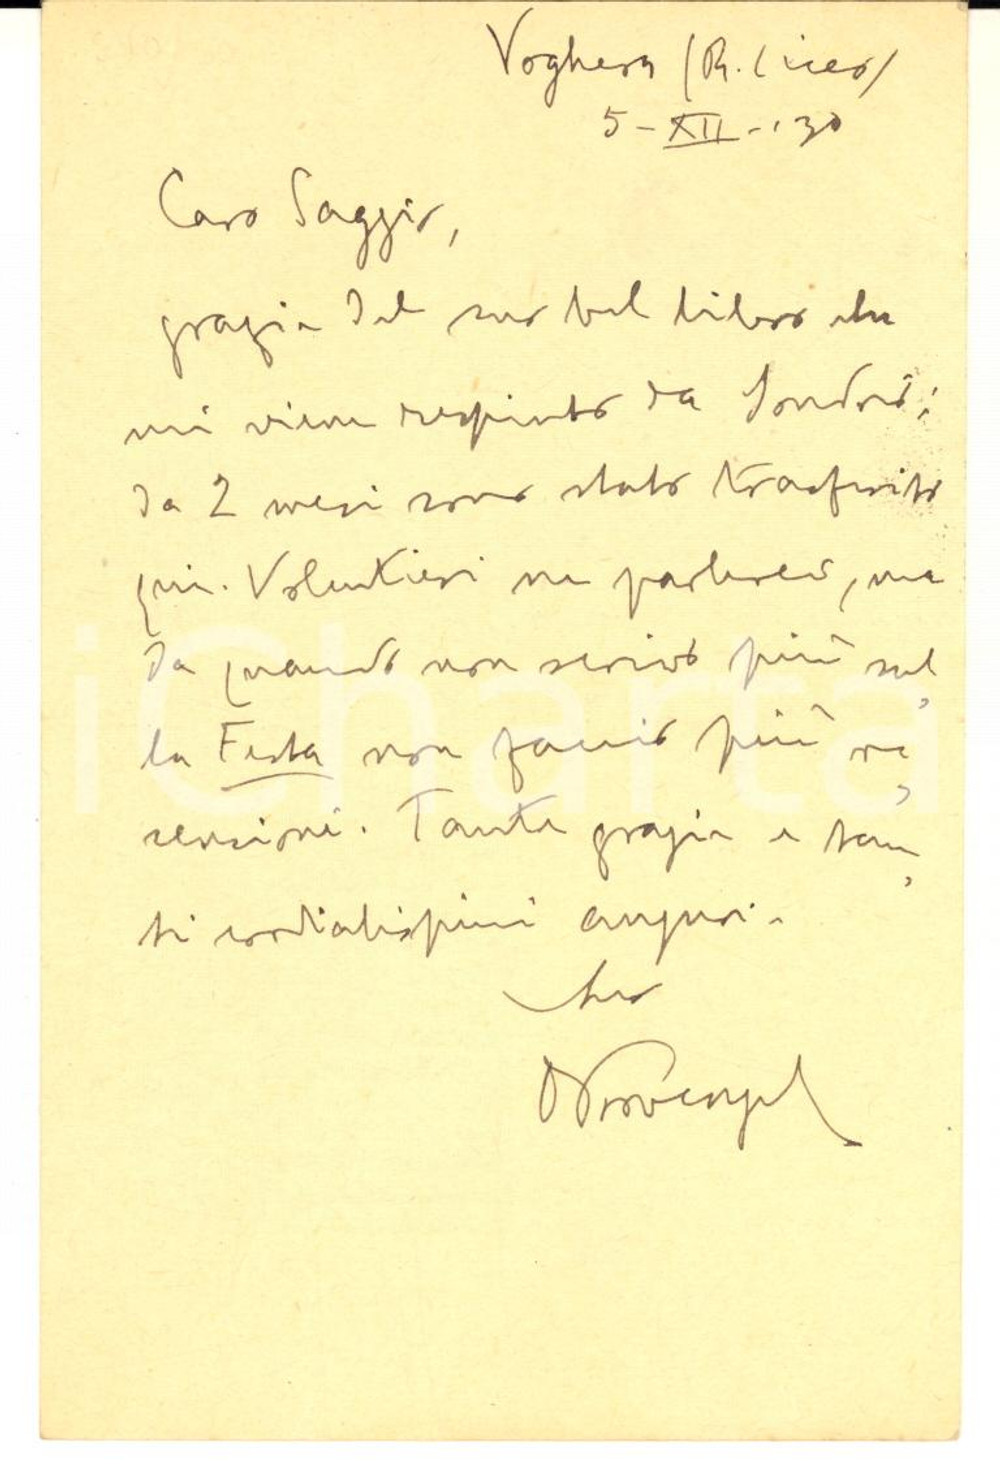 Voghera (R. Liceo)
5-XII-'30
Caro Saggio,
grazie del suo bel libro che
mi viene respinto da Sondrio;
da 2 mesi sono stato trasferito
qui. Volentieri ne parlerei, ma
da quando non scrivo più sul-
la Festa non faccio più re-
censioni. Tante grazie e tan-
ti cordialissimi auguri.
Suo
DProvenzal
iCharta